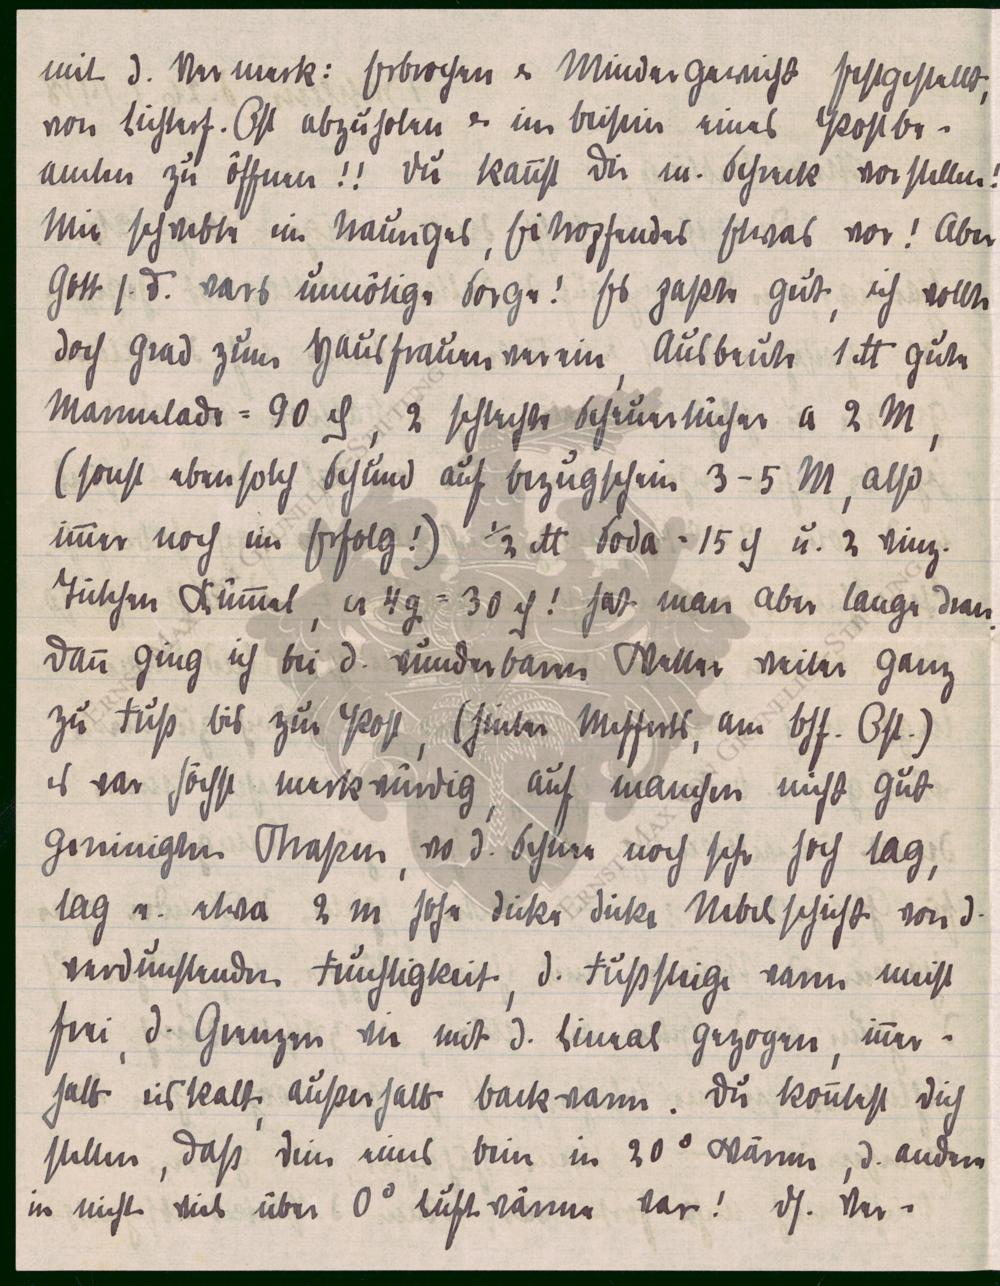 mit d. Vermerk: Erbrochen & Mindergewicht festgestellt,
von Lichterf. Ost abzuholen & im Beisein eines Postbe-
amten zu öffnen!! Du kan̄st Dir m. Schreck vorstellen!
Mir schwebte ein trauriges, tropfendes Etwas vor! Aber
Gott s. D. wars unnötige Sorge! Es paßte gut, ich wollte
doch grad zum Hausfrauenverein, Ausbeute 1 ℔ gute
Marmelade = 90 ₰, 2 schlechte Scheuertücher a 2 M,
(sonst ebensolch Schund auf Bezugschein 3-5 M, also
im̄er noch ein Erfolg!) ½ ℔ Soda - 15 ₰ u. 2 winz.
Tütchen Küm̄el, a 4 g = 30 ₰! hat man aber lange dran.
Dan̄ ging ich bei d. wunderbaren Wetter weiter ganz
zu Fuß bis zur Post, (hinter Mefferts, am Bhf. Ost.)
es war höchst merkwürdig, auf manchen nicht gut
gereinigten Straßen, wo d. Schnee noch sehr hoch lag,
lag e. etwa 2 m hohe dicke dicke Nebelschicht von d.
verdunstenden Feuchtigkeit, d. Fußsteige waren meist
frei, d. Grenzen wie mit d. Lineal gezogen, in̄er-
halb eiskalt, außerhalb backwarm. Du kon̄test Dich
stellen, daß dein eines Bein in 20° Wärme, d. andere
in nicht viel über 0° Luftwärme war! D. Ver-
ERNST MAX VON GRUNELIUS-STIFTUNG
ERNST MAX VON GRUNELIUS-STIFTUNG